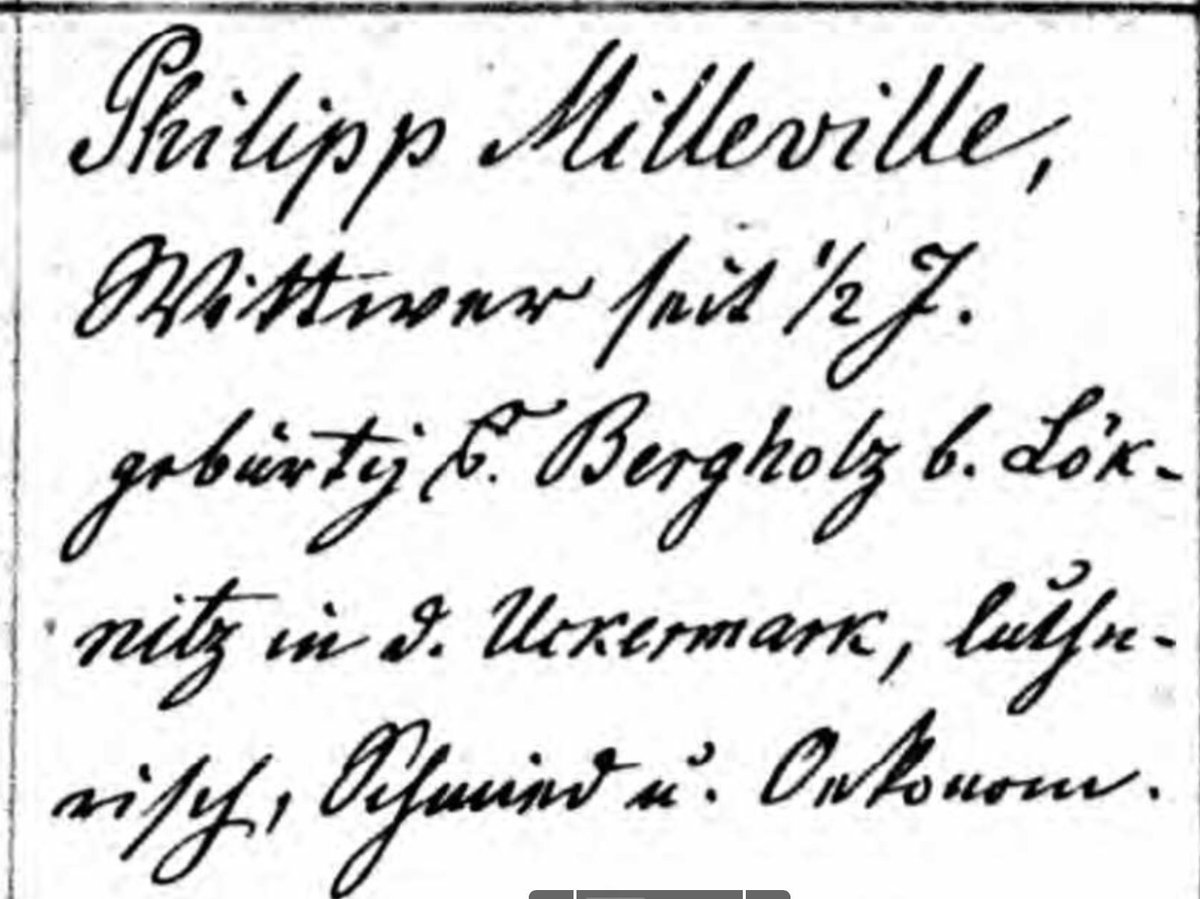 Philipp Milleville,
Wittwer seit 1/2 J.
gebürtig v. Bergholz b. Lök-
nitz in d. Uckermark, luthe-
risch, Schmied u. Oekonom.